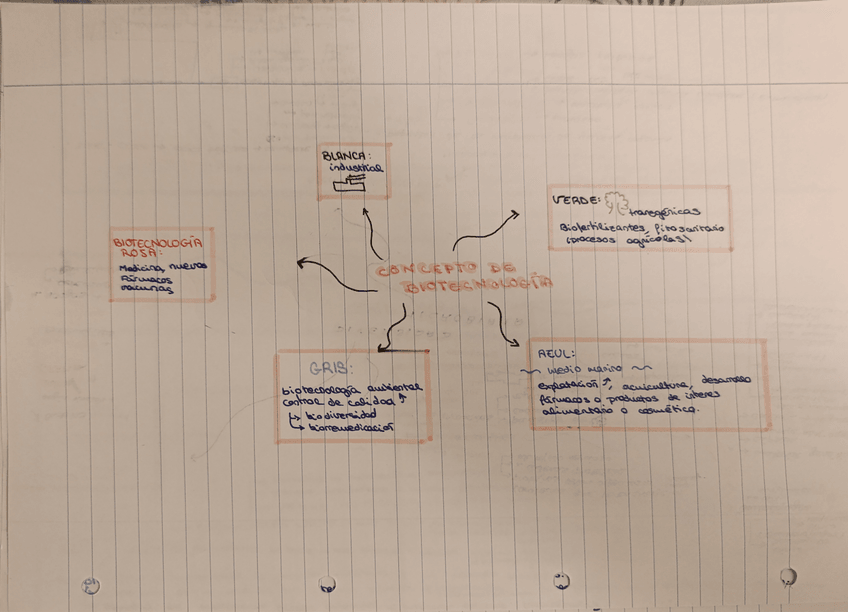 BLANCA:
industrial
VERDE:
transgénicas
Biofertilizantes, fitosanitario
(procesos agrícolas)
BIOTECNOLOGÍA
ROSA:
Medicina, nuevos
Fármacos
vacunas
CONCEPTO DE
BIOTECNOLOGÍA
GRIS:
biotecnología ambiental
control de calidad ↑
↳ biodiversidad
↳ biorremediación
AZUL:
medio marino
explotación ↑, acuicultura, desarrollo
fármacos o productos de interés
alimentario o cosmética.